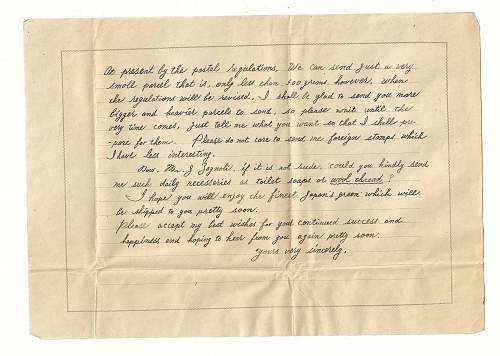 At present by the postal regulations, We can send just a very
small parcel that is, only less than 400 grams, however, when
the regulations will be revised, I shall be glad to send you more
bigger and heavier parcels to send, so please wait until the
very time comes, Just tell me what you want so that I shall pre-
-pare for them. Please do not care to send me foreign stamps which
I have less interesting.
Now, Mr. J. if it is not rude, could you kindly send
me such daily necessories as toilet soaps or wool thread?
I hope you will enjoy the finest Japan's green which will
be shipped to you pretty soon.
Please accept my best wishes for your continued success and
happiness and hoping to hear from you again pretty soon.
Yours very sincerely,